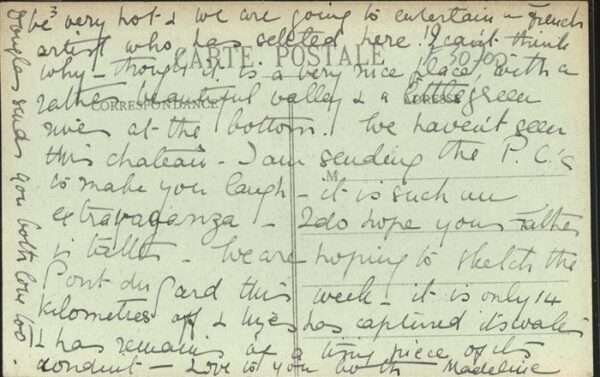 3
be very hot & we are going to entertain a French
artist who has settled here! I can't think
CARTE POSTALE
why - though it is a very nice place, with a
rather beautiful valley & a little green
CORRESPONDANCE
ADRESSE
river at the bottom. We haven't seen
this chateau - I am sending the P.C.'s
M
to make you laugh - it is such an
extravaganza - I do hope your Father
is better - We are hoping to sketch the
Pont du Gard this week - it is only 14
kilometres off & has captured its
& has remains of a tiny piece of its
conduit - Love to you both - Madeline
Douglas sends you both love too.